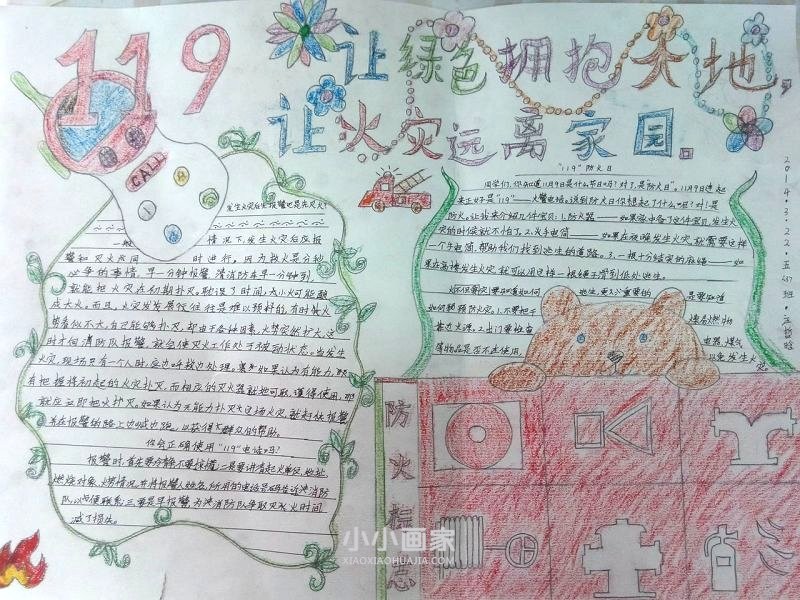 119
让绿色拥抱大地
让火灾远离家园。
CALL
发生火灾后先报警还是先灭火?
一般情况下,发生火灾后应报
警和灭火应同时进行,因为救火是分秒
必争的事情,早一分钟报警,消防车早一分钟到,
就能把火灾在初期扑灭。耽误了时间,小火可能酿
成大火。而且,火灾发发展往往是难以预料的,有时候火
势看似不大,自己能够扑灭,却由于各种因素,火势突然扩大,这
时才向消防队报警,就会使灭火工作处于被动状态。当发生
火灾,现场只有一个人时,应边呼救边处理。
有把握将初起的火灾扑灭,而相应的灭火器就地可取,懂得使用,
就应立即把火扑灭。如果认为无能力扑灭这场火灾,就赶快报警
并在报警的路上边喊边跑,以获得大群众的帮助。
你会正确使用"119"电话吗?
报警时,首先要冷静不要惊慌;二是要讲清起火单位,地址,
燃烧对象,燃情况,并将报警人姓名,所用的电话号码告诉消防
队,以便联系;三要是早报警,为消防队争取灭火时间
减了损失。
"119"防火日
同学们,你知道11月9日是什么节日吗?对了,是"防火日"。11月9日连起
来正好是"119"——火警电话。说到防火日你想起了什么呢?对!是
防火。让我来介绍几件宝贝:1.防火器——如果家中备了这件宝贝,发生火
灾的时候就不怕了。2.火手电筒——如果在夜晚发生火灾,就需要这样
一个手电筒,帮助我们找到逃生的道路。3.一根十分结实的麻绳——如
果在高楼发生火灾,就可以用这样一根绳子滑到低处逃生。
你但要灾要知道如何逃生,更重要的是要知道
如何预预防火灾:1.不要把干燥易燃物
靠近火源。2.出门要检查电器、煤气
等物品是否不在使用,以免发生火
灾。
防火标志
2014.3.22.五
小小画家
XIAOXIAOHUAJIA.COM